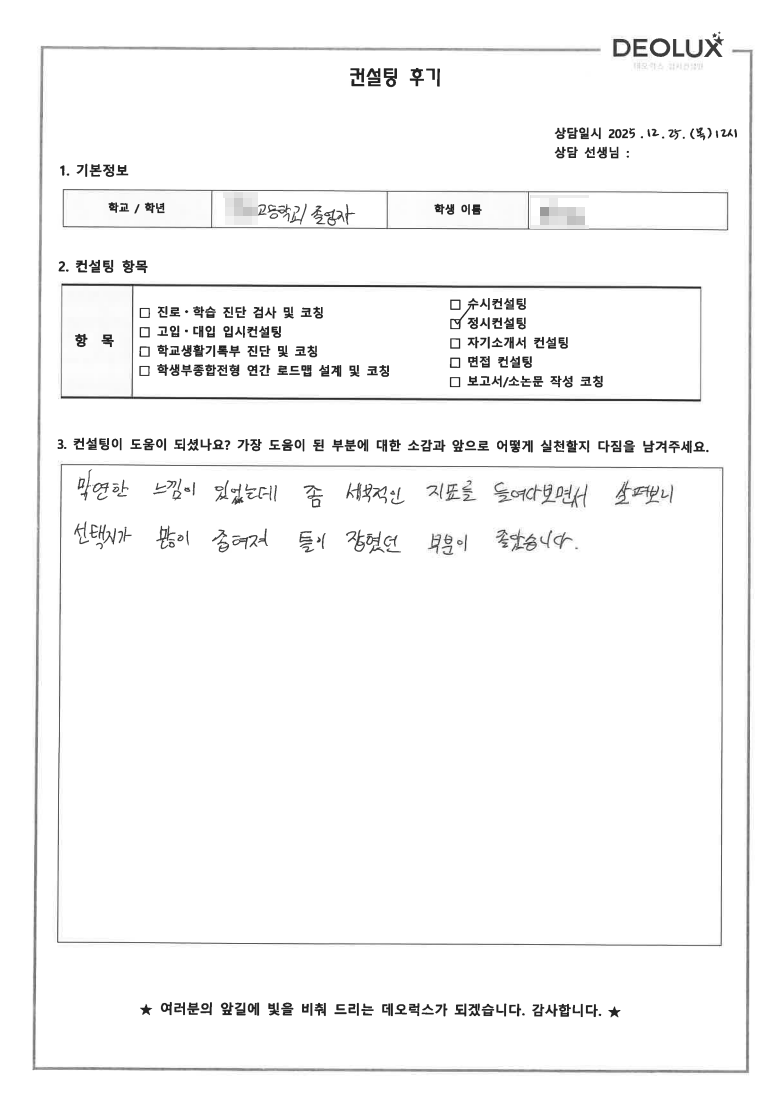 DEOLUX
데오럭스 입시컨설팅
컨설팅 후기
상담일시 2025.12.25.(목)12시
상담 선생님 :
1. 기본정보
학교 / 학년 고등학교/ 졸업자 학생 이름
2. 컨설팅 항목
항 목
□ 진로·학습 진단 검사 및 코칭
□ 고입·대입 입시컨설팅
□ 학교생활기록부 진단 및 코칭
□ 학생부종합전형 연간 로드맵 설계 및 코칭
□ 수시컨설팅
☑ 정시컨설팅
□ 자기소개서 컨설팅
□ 면접 컨설팅
□ 보고서/소논문 작성 코칭
3. 컨설팅이 도움이 되셨나요? 가장 도움이 된 부분에 대한 소감과 앞으로 어떻게 실천할지 다짐을 남겨주세요.
막연한 느낌이 있었는데 좀 세부적인 지표를 들여다보면서 살펴보니
선택지가 많이 좁혀져 틀이 잡혔던 부분이 좋았습니다.
★ 여러분의 앞길에 빛을 비춰 드리는 데오럭스가 되겠습니다. 감사합니다. ★